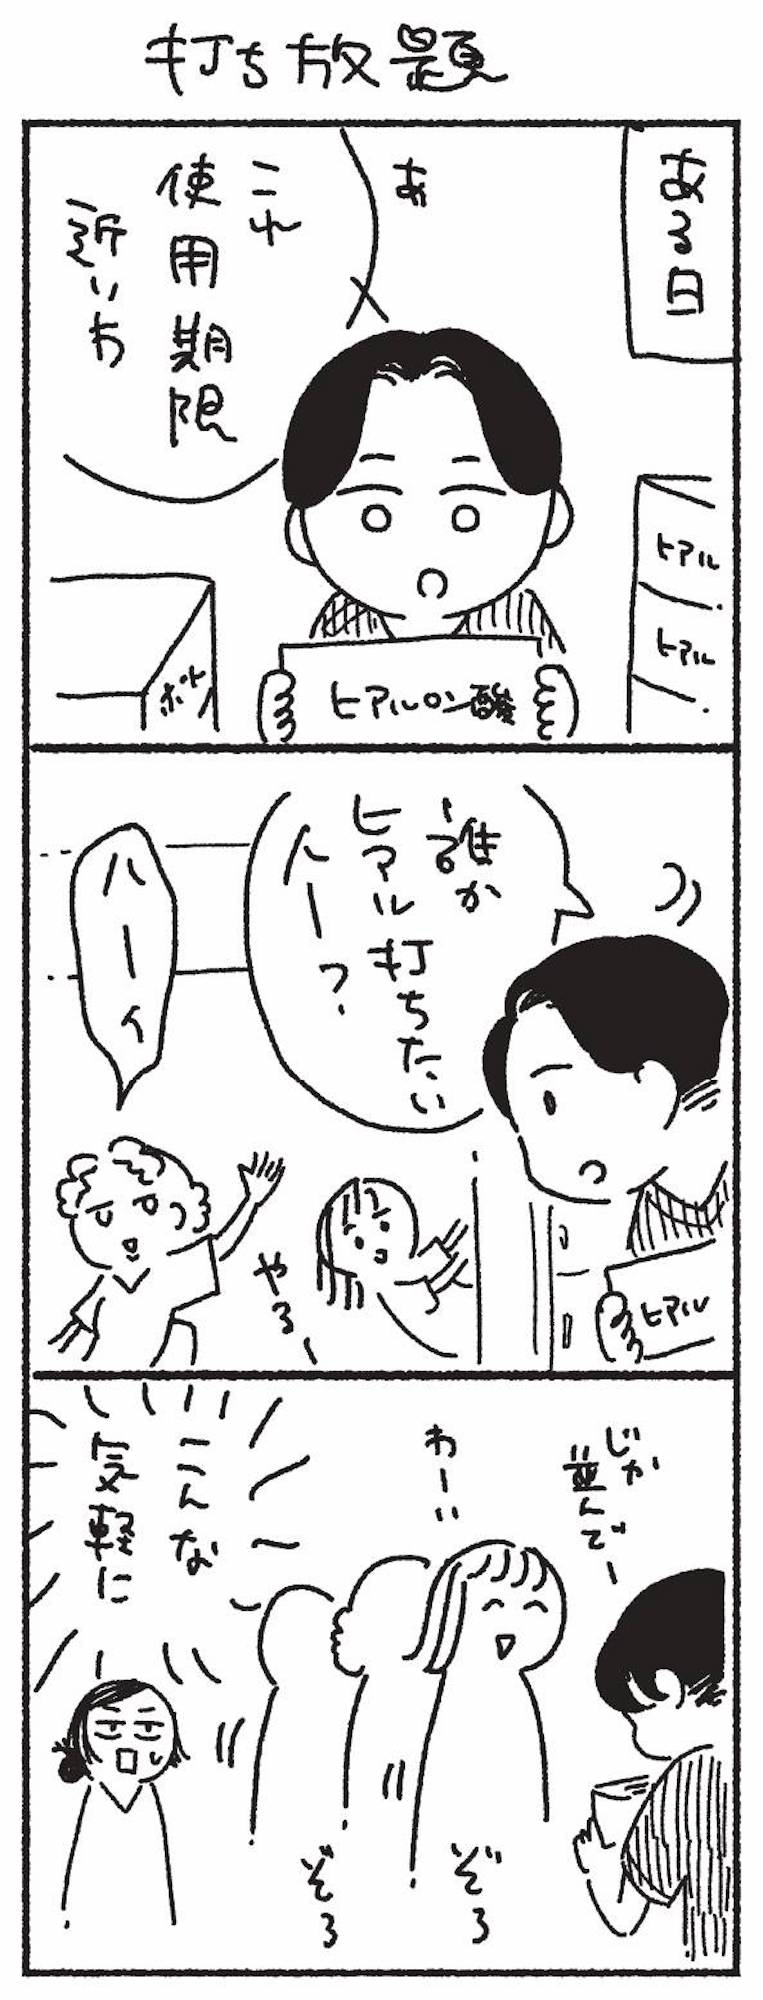 打ち放題
ある日
あ
これ
使用期限
近いわ
ヒアル
ヒアル
ボト
ヒアルロン酸
誰か
ヒアル打ちたい
人ー?
ハーイ
やるー
ヒアル
じゃ
並んでー
わーい
こんな
気軽に
ぞろ
ぞろ